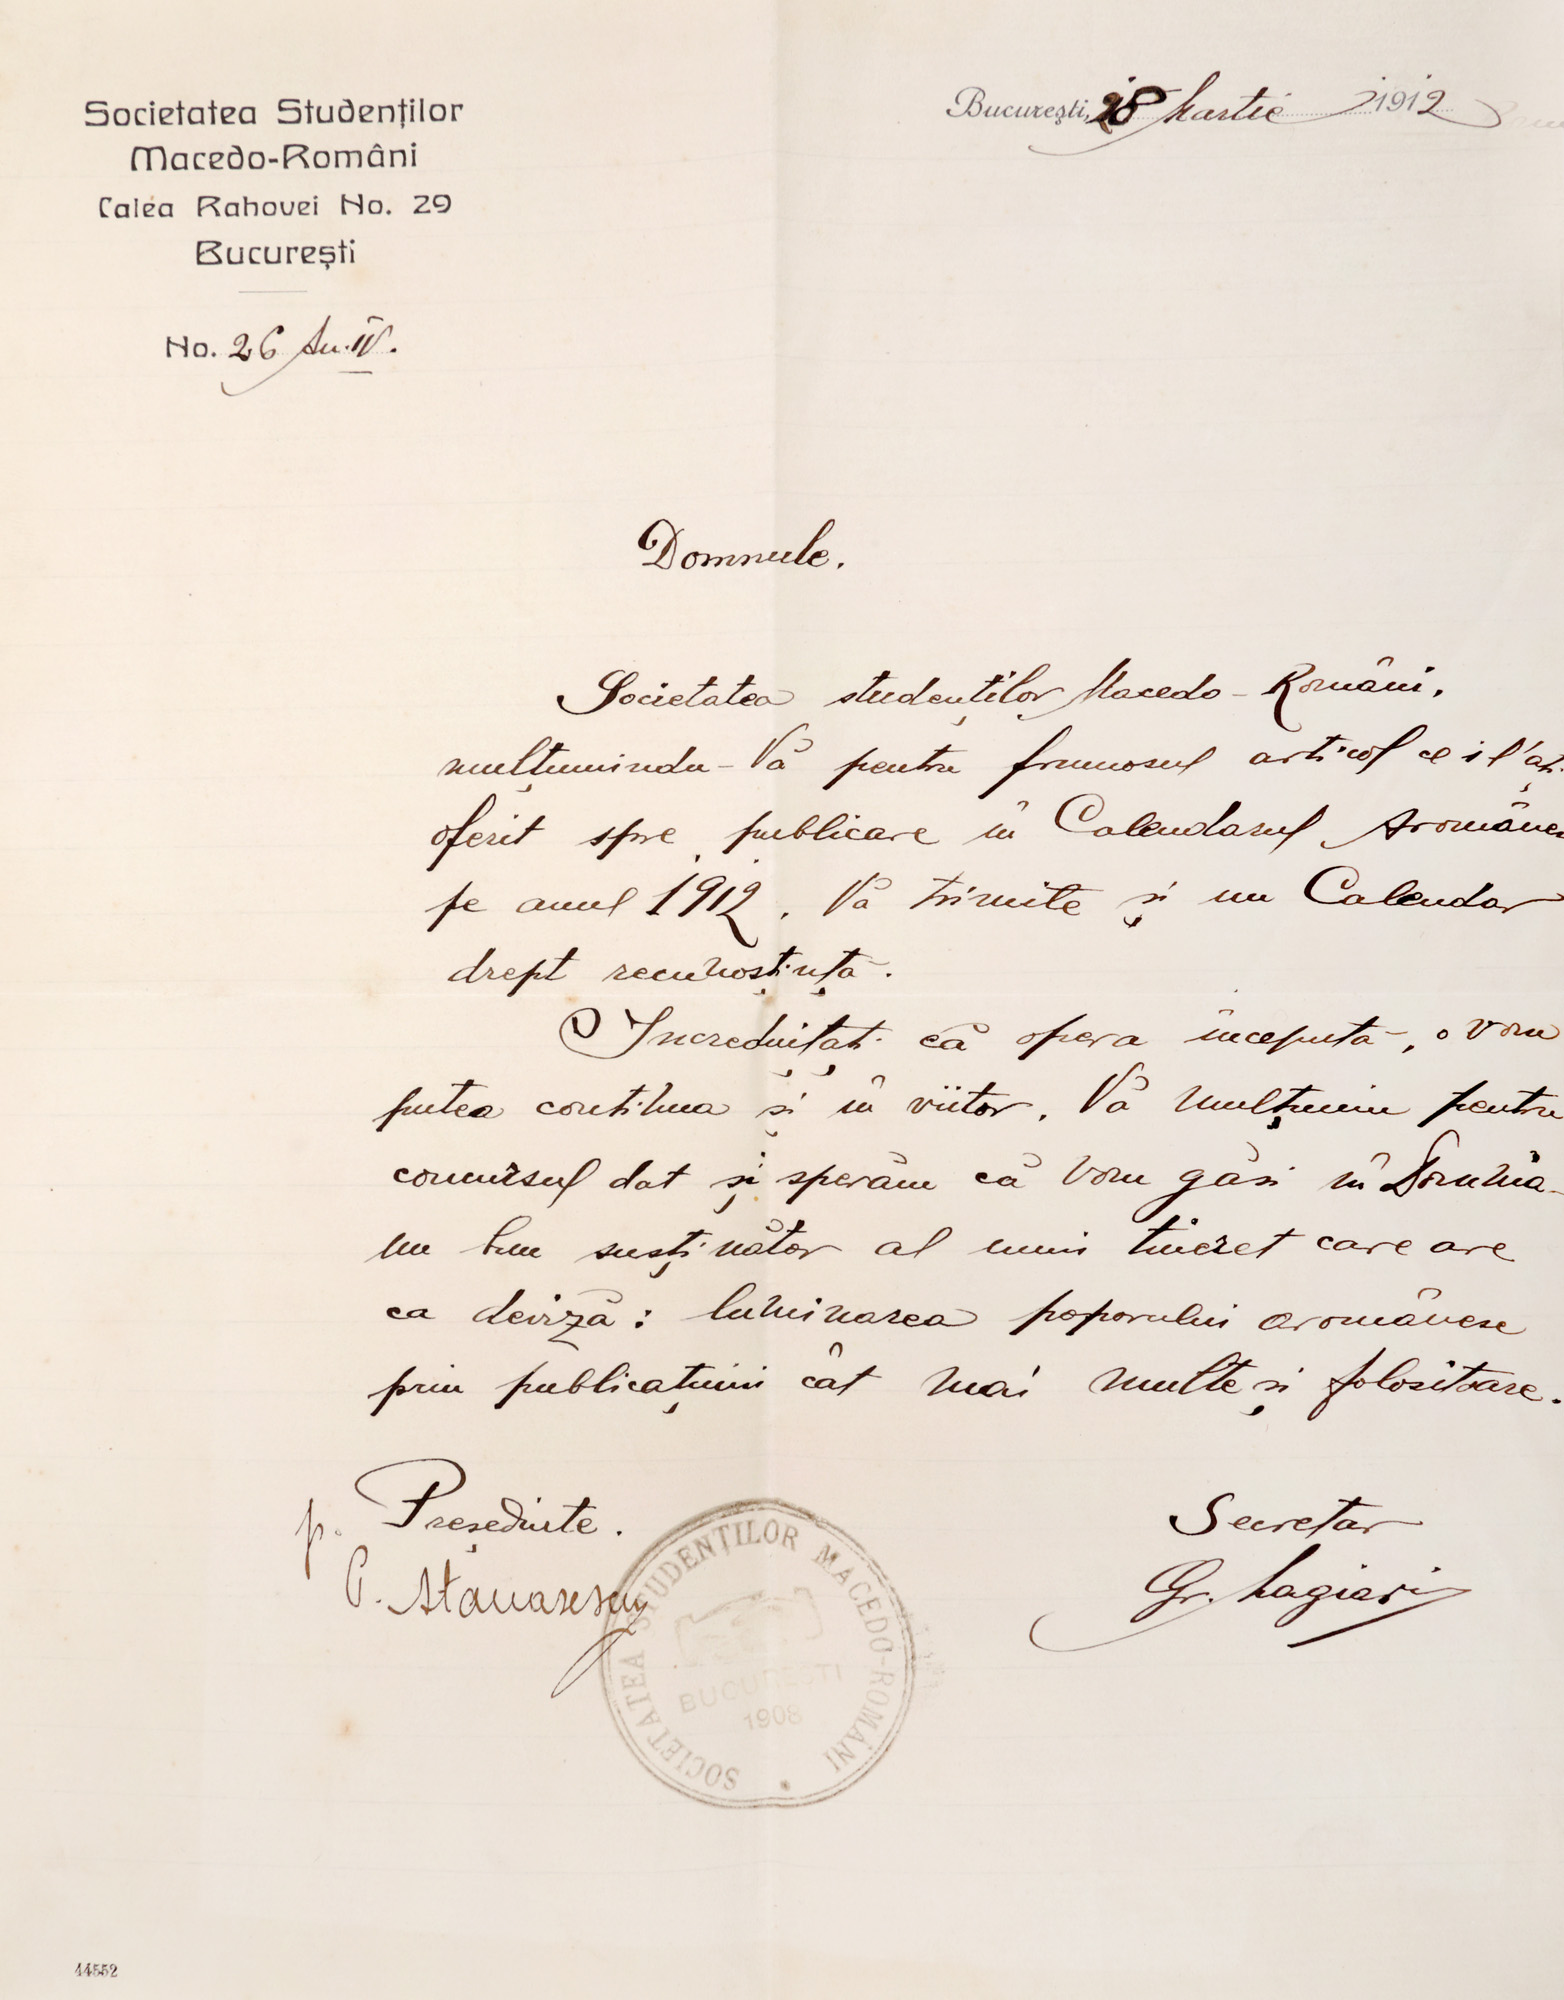 Societatea Studenților
Macedo-Români
Calea Rahovei No. 29
București
No. 26 An. IV.
București, 28 Martie 1912
Domnule.
Societatea studenților Macedo-Români,
mulțumindu-Vă pentru frumosul articol ce i l'ați
oferit spre publicare în Calendarul Aromânesc
pe anul 1912, Vă trimite și un Calendar
drept recunoștință.
Încredințați că opera începută, o vom
putea continua și în viitor, Vă mulțumim pentru
concursul dat și sperăm că vom găsi în Domnia-
un bun susținător al unui tineret care are
ca deviză: luminarea poporului aromânesc
prin publicațiuni cât mai multe și folositoare.
p. Președinte.
Secretar
Gr.
SOCIETATEA STUDENȚILOR MACEDO-ROMÂNI
BUCUREȘTI
1908
44552